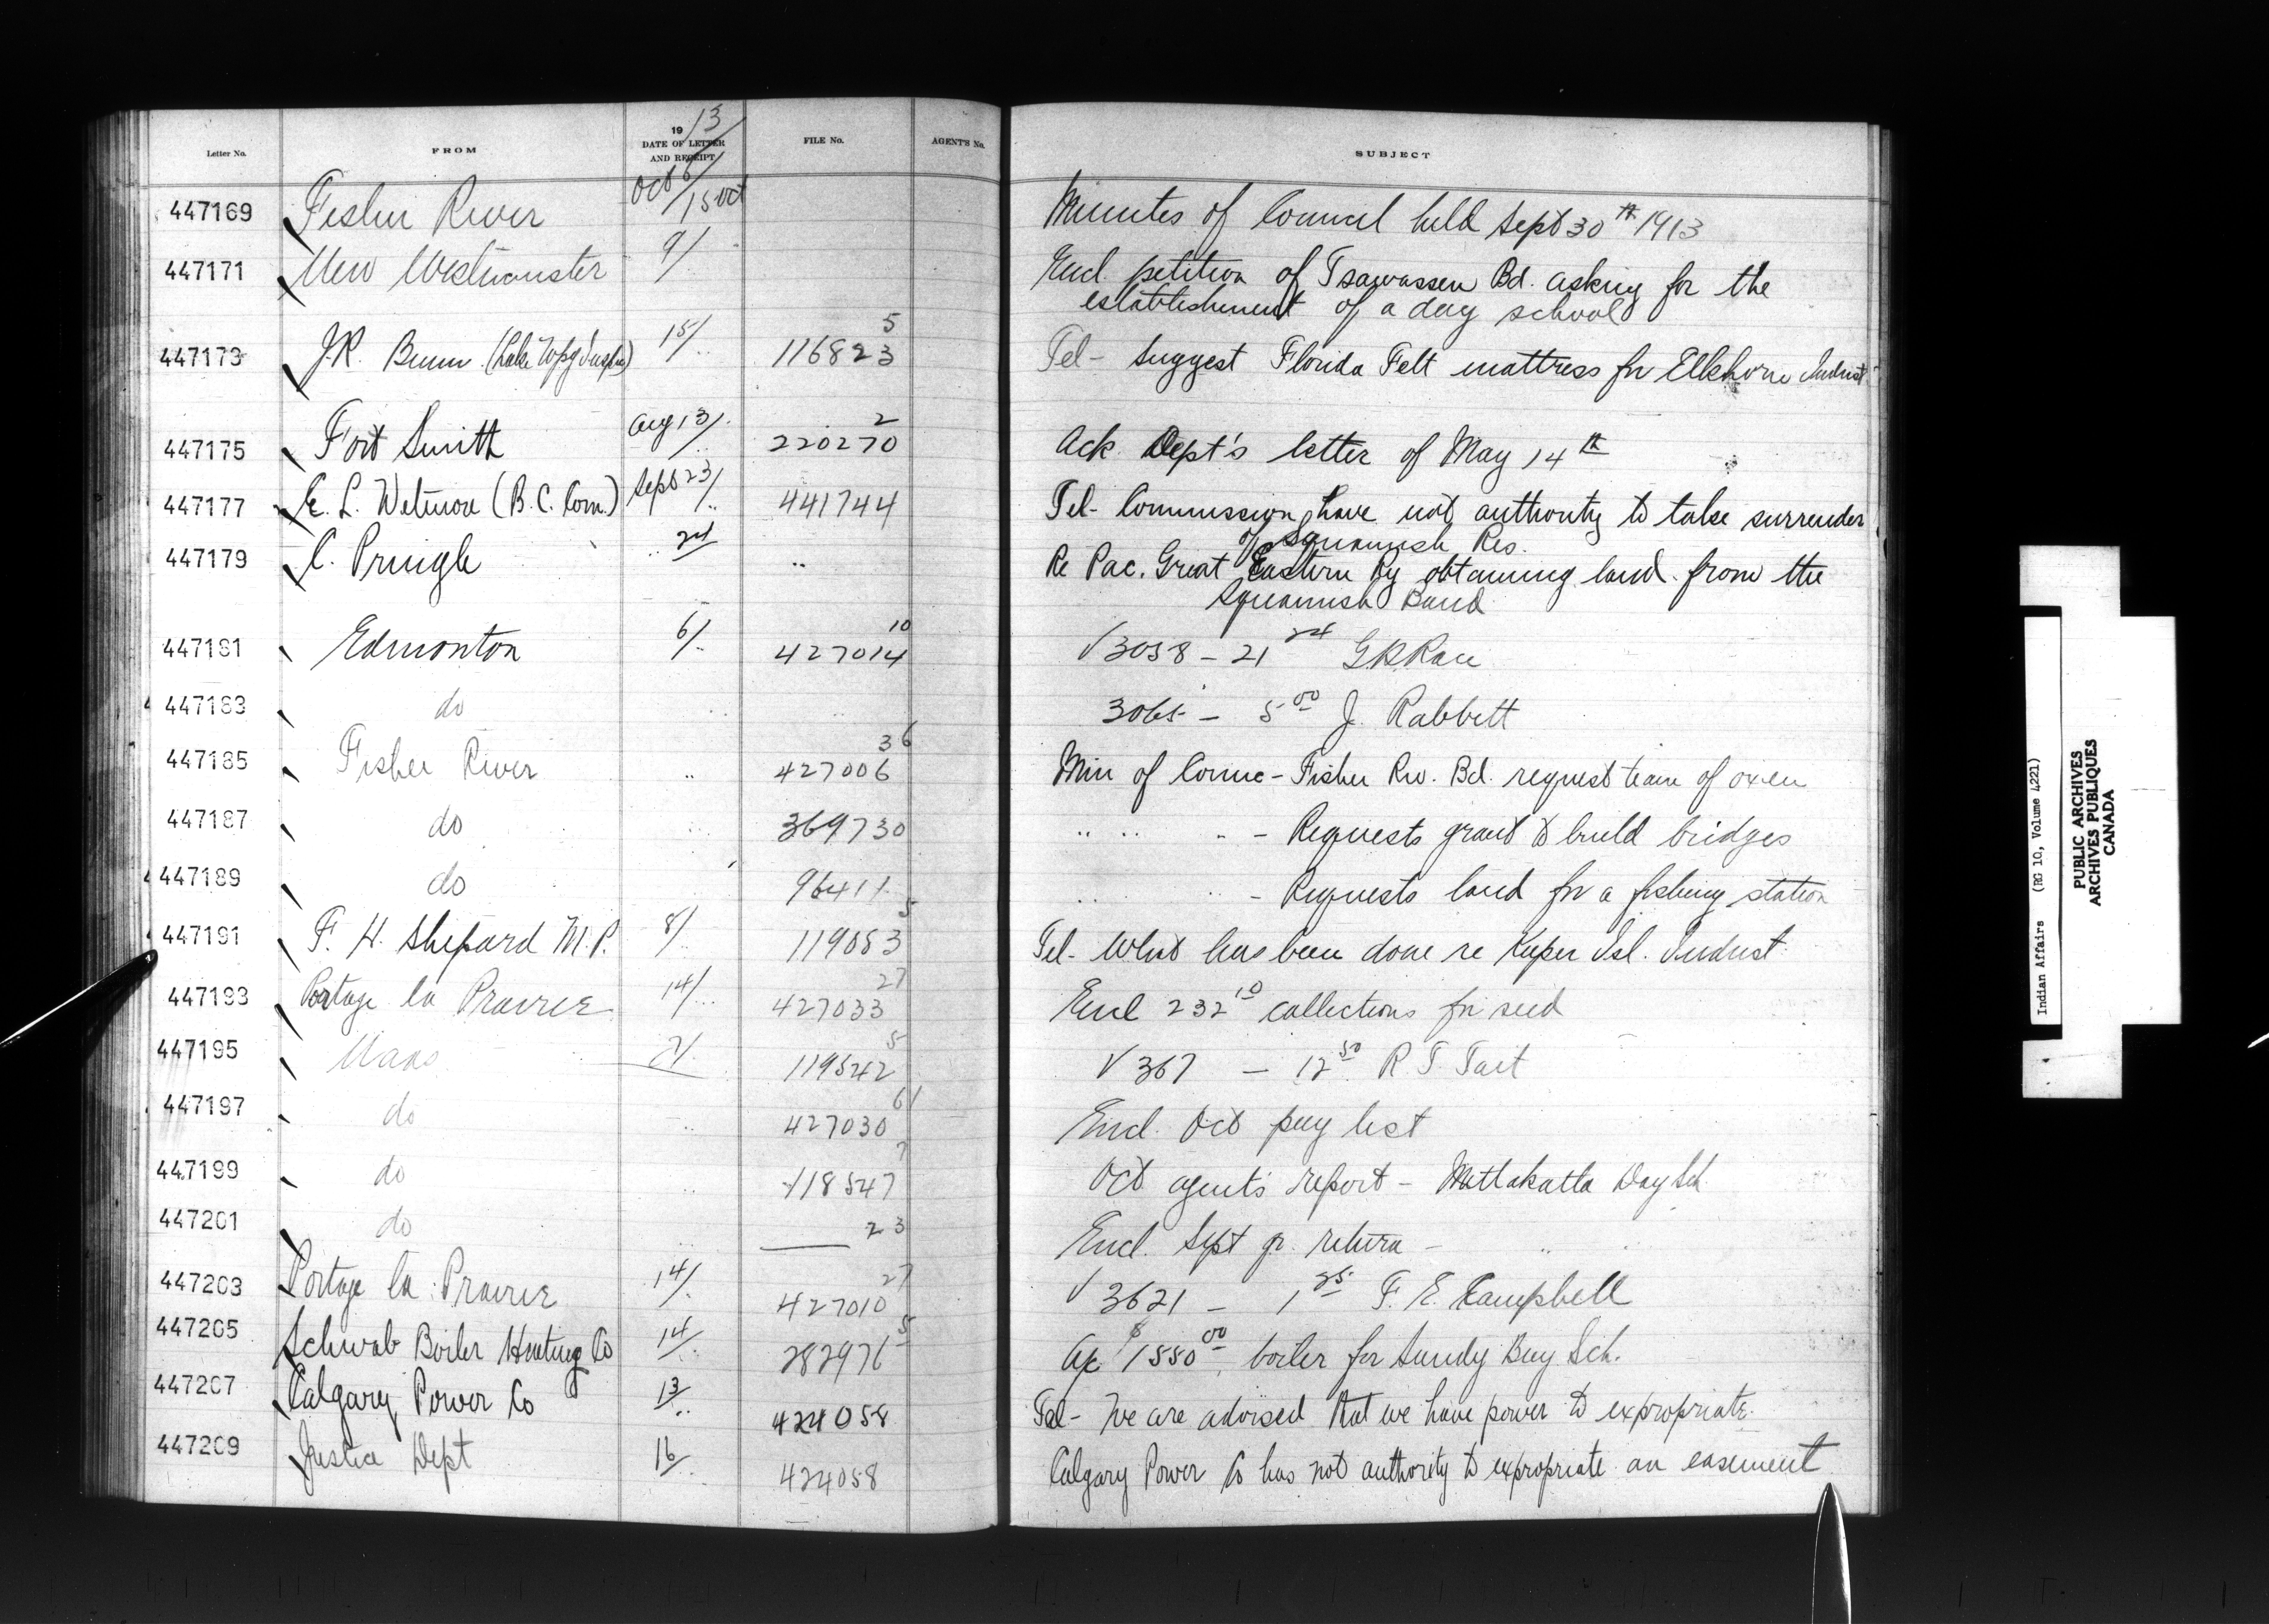 Letter No. FROM 19/13 DATE OF LETTER AND RECEIPT FILE No. AGENT'S No. SUBJECT
447169 Fisher River Oct 6/15 Oct Minutes of Council held Sept 30th 1913
447171 New Westminster 9/ Encl. petition of Tsawassen Bd. asking for the
establishment of a day school
447173 J.R. Bunn (Lake Wpg Inspr) 15/ " 116823 5 Tel- Suggest Florida Felt mattress for Elkhorn Indust
447175 Fort Smith Aug 13/ " 220270 2 Ack Dept's letter of May 14th
447177 E. L. Wetmore (B.C. Com.) Sept 23/ " 441744 Tel- Commission have not authority to take surrender
of Squamish Res.
447179 C. Pringle " 24 " Re Pac. Great Eastern Ry obtaining land from the
Squamish Band
447181 Edmonton 6/ " 427014 10 √ 3058 - 21
447183 do 3065 - 5 00 J. Rabbitt
447185 Fisher River " 427006 36 Min of Counc - Fisher Riv. Bd. request team of oxen
447187 do 369730 " " " - Requests grant to build bridges
447189 do 96411 " " - Requests land for a fishing station
447191 F. H. Shepard M.P. 8/ " 119053 5 Tel- What has been done re Kuper Isl. Indust
447193 Portage la Prairie 14/ " 427033 27 Encl 232 10 collections for seed
447195 119542 5 √ 367 - 12 50 R T Tait
447197 do " 427030 61 Encl. Oct pay list
447199 do " 118547 7 Oct agents report - Mattakatla Day Sch
447201 do 23 Encl. Sept qr. return - " "
447203 Portage la Prairie 14/ 427010 27 √ 3621 - 1 25 F. E. Campbell
447205 Schwab Boiler Heating Co 14/ 282976 5 Ac $1550 00 boiler for Sandy Bay Sch.
447207 Calgary Power Co 13/ " 424058 Tel- We are advised that we have power to expropriate.
447209 Justice Dept 16/ 424058 Calgary Power Co has not authority to expropriate an easement
Indian Affairs (RG 10, Volume 4221)
PUBLIC ARCHIVES
ARCHIVES PUBLIQUES
CANADA